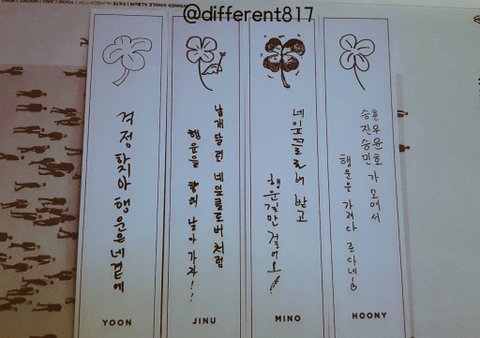 @different817
걱정 하지마 행운은 네곁에
YOON
날개달린 네잎클로버처럼
행운을 향해 날아가자!!
JINU
네잎클로버 받고
행운길만 걸어요!
MINO
승훈
진우
승윤
민호가 모여서
행운을 가져다 준다네!
HOONY